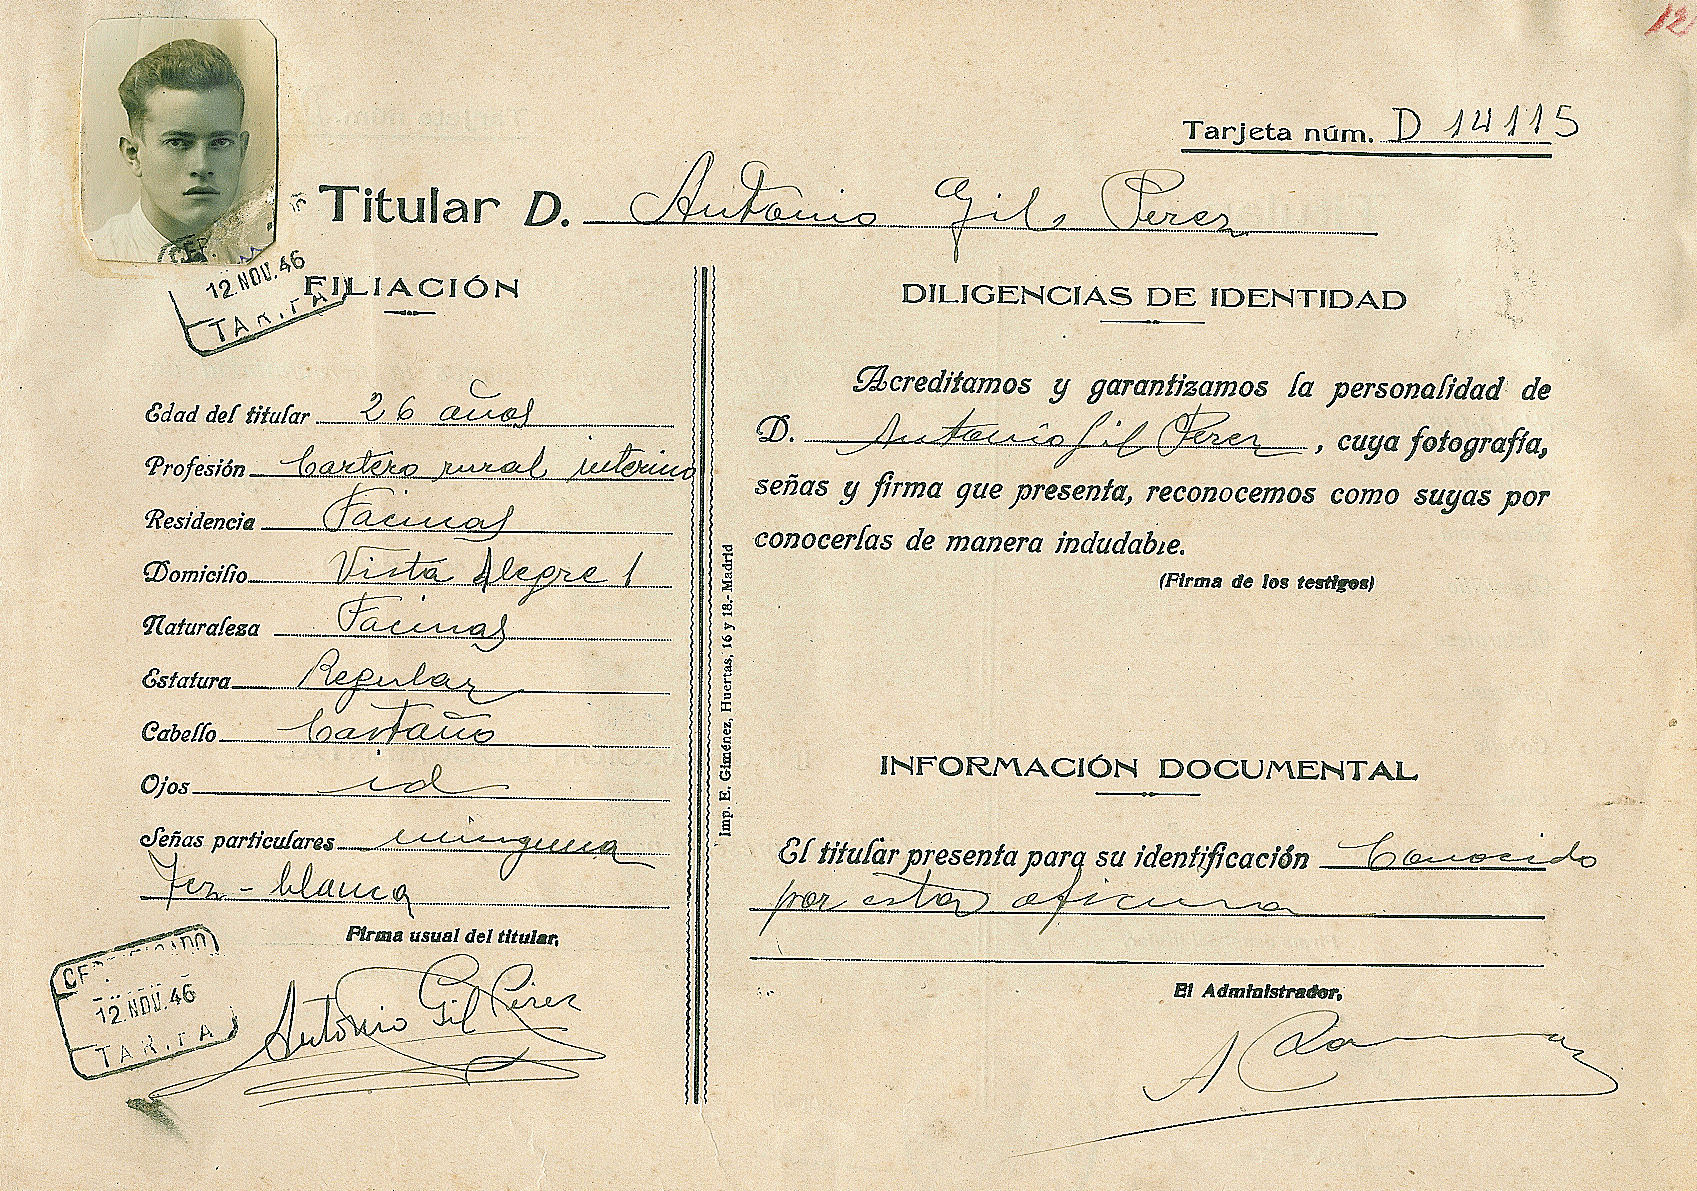 12
Tarjeta núm. D 14115
Titular D. Antonio Gil Perez
CER.
12 NOV. 46
TARIFA
FILIACIÓN
Edad del titular 26 años
Profesión Cartero rural interino
Residencia Facinas
Domicilio Vista Alegre 1
Naturaleza Facinas
Estatura Regular
Cabello Castaño
Ojos id
Señas particulares ninguna
Tez - blanca
Firma usual del titular,
Antonio Gil Pérez
CERTIFICADO
12 NOV. 46
TARIFA
Imp. E. Giménez, Huertas, 16 y 18.-Madrid
DILIGENCIAS DE IDENTIDAD
Acreditamos y garantizamos la personalidad de
D. Antonio Gil Perez, cuya fotografía,
señas y firma que presenta, reconocemos como suyas por
conocerlas de manera indudable.
(Firma de los testigos)
INFORMACIÓN DOCUMENTAL
El titular presenta para su identificación Conocido
por esta oficina
El Administrador,